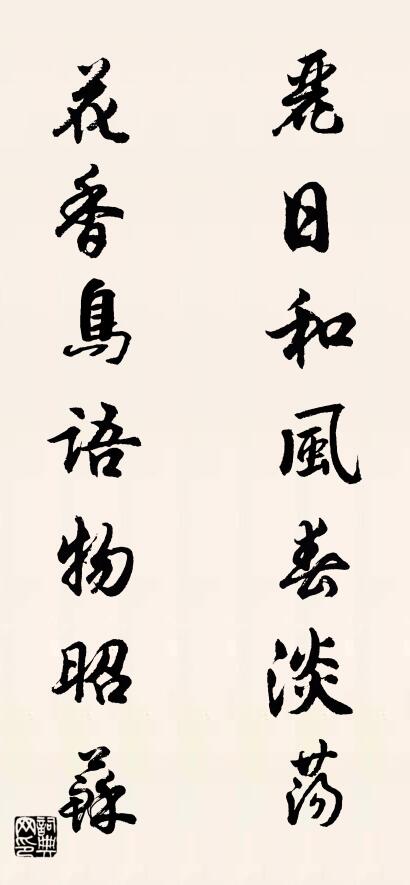 麗日和風春淡蕩
花香鳥語物昭蘇
詞典網印